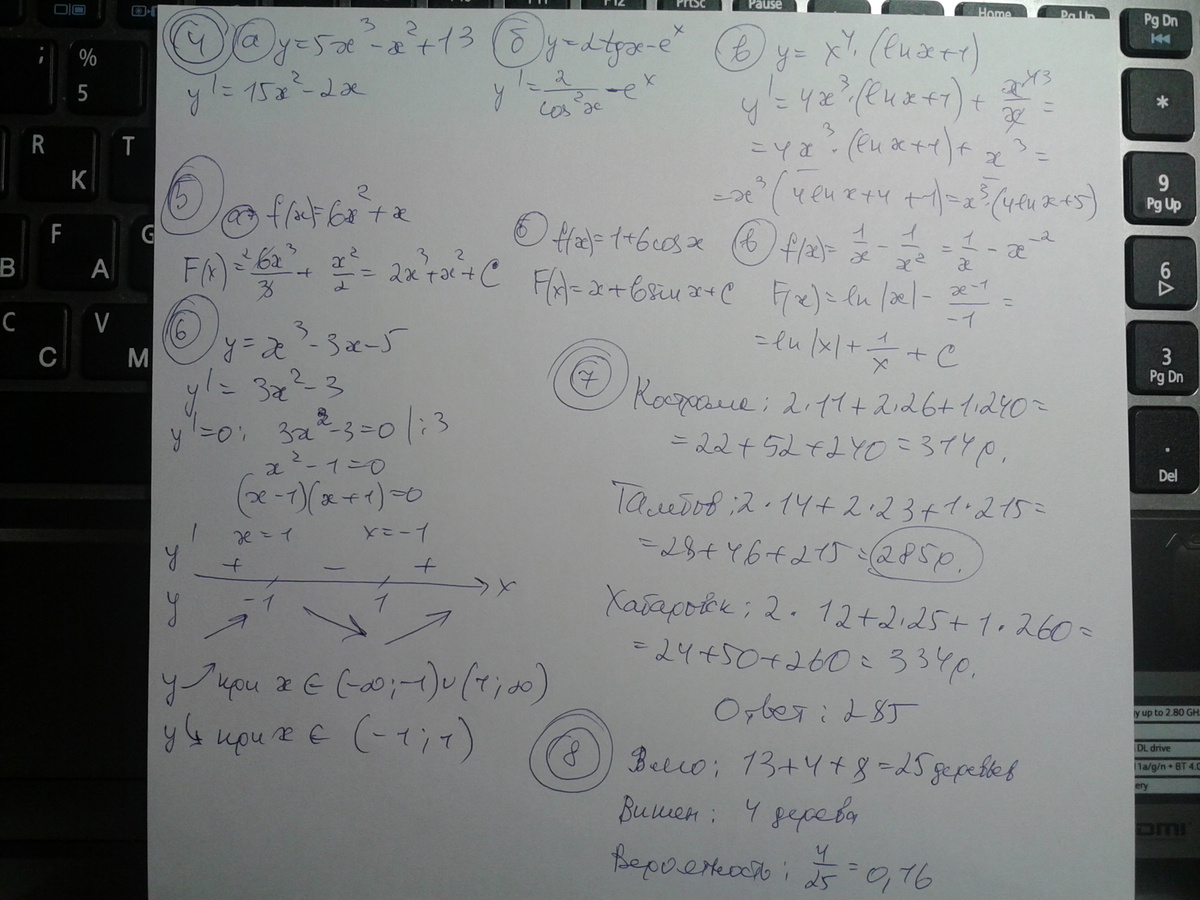 PrtSc
F12
Pause
Home
Pg Up
Pg Dn
;
%
5
*
R
K
T
9
Pg Up
F
A
G
B
6
C
C
V
M
3
Pg Dn
.
Del
4 а y=5x³-x²+13
y'=15x²-2x
б y=2tgx-eˣ
y'=2/cos²x-eˣ
в y= x⁴·(lnx+1)
y'=4x³·(lnx+1)+x⁴/x=
=4x³·(lnx+1)+x³=
=x³(4lnx+4+1)=x³·(4lnx+5)
5
а f(x)=6x²+x
F(x)=6x³/3+x²/2=2x³+x²+C
б f(x)=1+6cosx
F(x)=x+6sinx+C
в f(x)=1/x-1/x²=1/x-x⁻²
F(x)=ln|x|-x⁻¹/-1=
=ln|x|+1/x+C
6
y=x³-3x-5
y'=3x²-3
y'=0; 3x²-3=0 |:3
x²-1=0
(x-1)(x+1)=0
x=1 x=-1
y' + - + x
y -1 1
y ↗ при x ∈ (-∞;-1)∪(1;∞)
y ↘ при x ∈ (-1;1)
7
Кострома: 2·11+2·26+1·240=
=22+52+240=314р.
Тамбов: 2·14+2·23+1·215=
=28+46+215=285р.
Хабаровск: 2·12+2·25+1·260=
=24+50+260=334р.
Ответ: 285
8
Всего: 13+4+8=25 деревьев
Вишен: 4 дерева
Вероятность: 4/25=0,16
y up to 2.80 GH
DL drive
1a/g/n + BT 4.0
ery